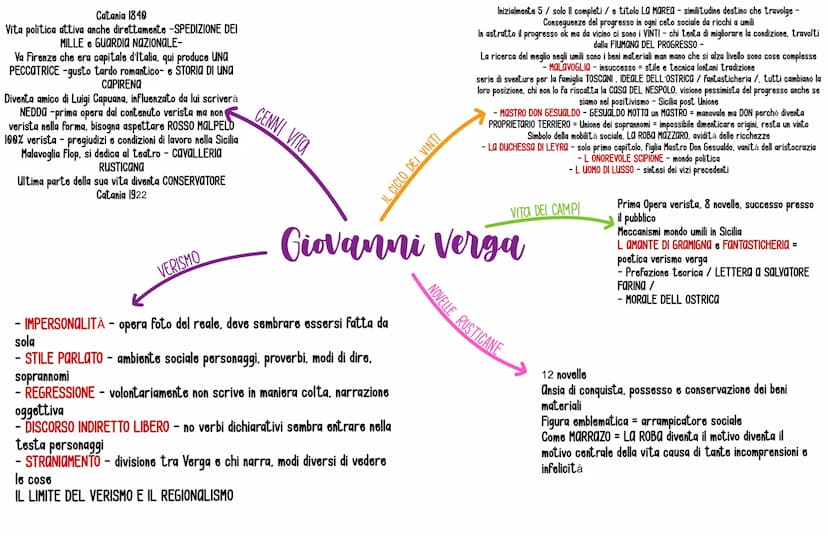 Catania 1840
Vita politica attiva anche direttamente -SPEDIZIONE DEI
MILLE e GUARDIA NAZIONALE-
Va Firenze che era capitale d'Italia, qui produce UNA
PECCATRICE -gusto tardo romantico- e STORIA DI UNA
CAPIRENA
Diventa amico di Luigi Capuana, influenzato da lui scriverà
NEDDA -prima opera dal contenuto verista ma non
verista nella forma, bisogna aspettare ROSSO MALPELO
100% verista - pregiudizi e condizioni di lavoro nella Sicilia
Malavoglia Flop, si dedica al teatro - CAVALLERIA
RUSTICANA
Ultima parte della sua vita diventa CONSERVATORE
Catania 1922
CENNI VITA
Inizialmente 5 / solo II completi / e titolo LA MAREA - similitudine destino che travolge -
Conseguenze del progresso in ogni ceto sociale da ricchi a umili
In astratto il progresso ok ma da vicino ci sono i VINTI - chi tenta di migliorare la condizione, travolti
dalla FIUMANA DEL PROGRESSO -
La ricerca del meglio negli umili sono i beni materiali man mano che si alza livello sono cose complesse
- MALAVOGLIA - insuccesso = stile e tecnica lontani tradizione
serie di sventure per la famiglia TOSCANI , IDEALE DELL'OSTRICA / fantasticheria /, tutti cambiano la
loro posizione, chi non lo fa riscatta la CASA DEL NESPOLO, visione pessimista del progresso anche se
siamo nel positivismo - Sicilia post Unione
- MASTRO DON GESUALDO - GESUALDO MOTTA un MASTRO = manovale ma DON perché diventa
PROPRIETARIO TERRIERO = Unione dei soprannomi = impossibile dimenticare origini, resta un vinto
Simbolo della mobilità sociale, LA ROBA MAZZARO, avidità delle ricchezze
- LA DUCHESSA DI LEYRA - solo primo capitolo, figlia Mastro Don Gesualdo, vanità dell aristocrazia
- L ONOREVOLE SCIPIONE - mondo politica
- L UOMO DI LUSSO - sintesi dei vizi precedenti
IL CICLO DEI VINTI
VITA DEI CAMPI
Prima Opera verista, 8 novelle, successo presso
il pubblico
Meccanismi mondo umili in Sicilia
L AMANTE DI GRAMIGNA e FANTASTICHERIA =
poetica verismo verga
- Prefazione teorica / LETTERA A SALVATORE
FARINA /
- MORALE DELL OSTRICA
Giovanni Verga
VERISMO
- IMPERSONALITÀ - opera foto del reale, deve sembrare essersi fatta da
sola
- STILE PARLATO - ambiente sociale personaggi, proverbi, modi di dire,
soprannomi
- REGRESSIONE - volontariamente non scrive in maniera colta, narrazione
oggettiva
- DISCORSO INDIRETTO LIBERO - no verbi dichiarativi sembra entrare nella
testa personaggi
- STRANIAMENTO - divisione tra Verga e chi narra, modi diversi di vedere
le cose
IL LIMITE DEL VERISMO E IL REGIONALISMO
NOVELLE RUSTICANE
12 novelle
Ansia di conquista, possesso e conservazione dei beni
materiali
Figura emblematica = arrampicatore sociale
Come MARRAZO = LA ROBA diventa il motivo diventa il
motivo centrale della vita causa di tante incomprensioni e
infelicità